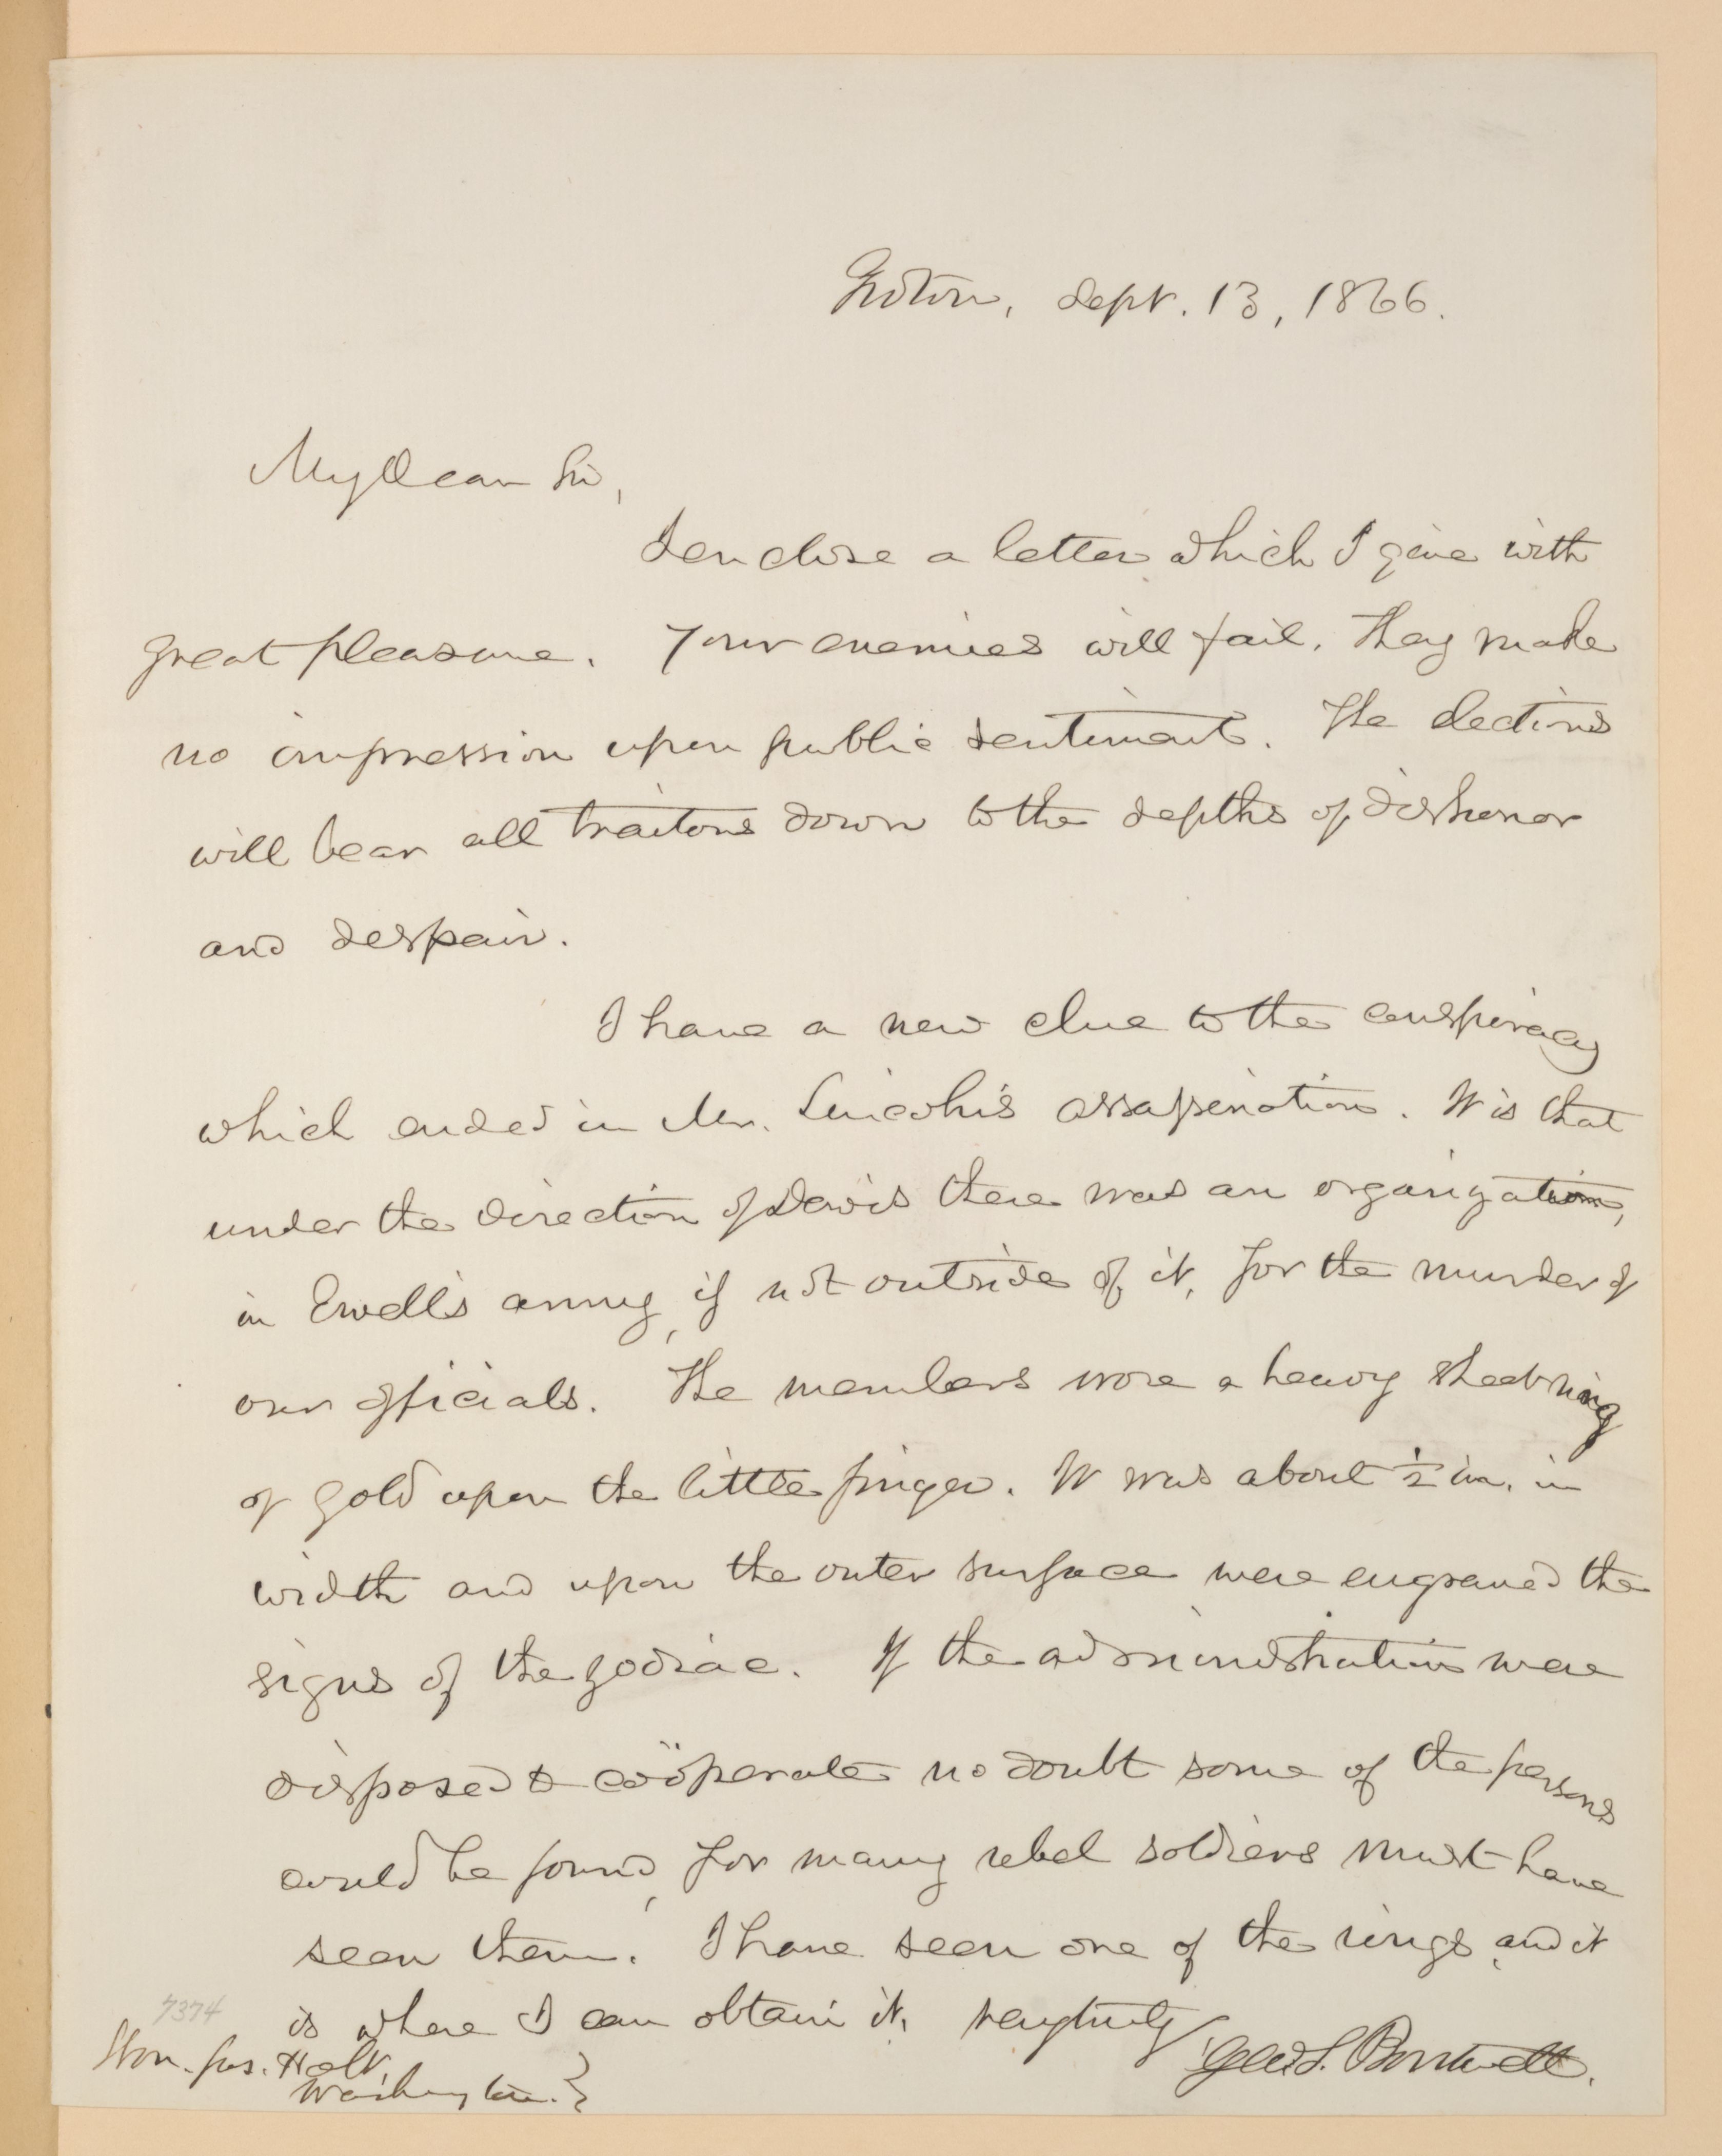 Groton, Sept. 13, 1866.
My Dear Sir,
I enclose a letter which I give with
great pleasure. Your enemies will fail. They make
no impression upon public sentiment. The elections
will bear all traitors down to the depths of dishonor
and despair.
I have a new clue to the conspiracy
which ended in Mr. Lincoln's assassination. It is that
under the direction of Davis there was an organization,
in Ewell's army, if not outside of it, for the murder of
our officials. The members wore a heavy sheet ring
of gold upon the little finger. It was about ½ in. in
width and upon the outer surface were engraved the
signs of the zodiac. If the administration were
disposed to coöperate no doubt some of the persons
could be found, for many rebel soldiers must have
seen them. I have seen one of the rings, and it
is where I can obtain it. Very truly
Geo. S. Boutwell.
7374
Hon. Jos. Holt,
Washington. }